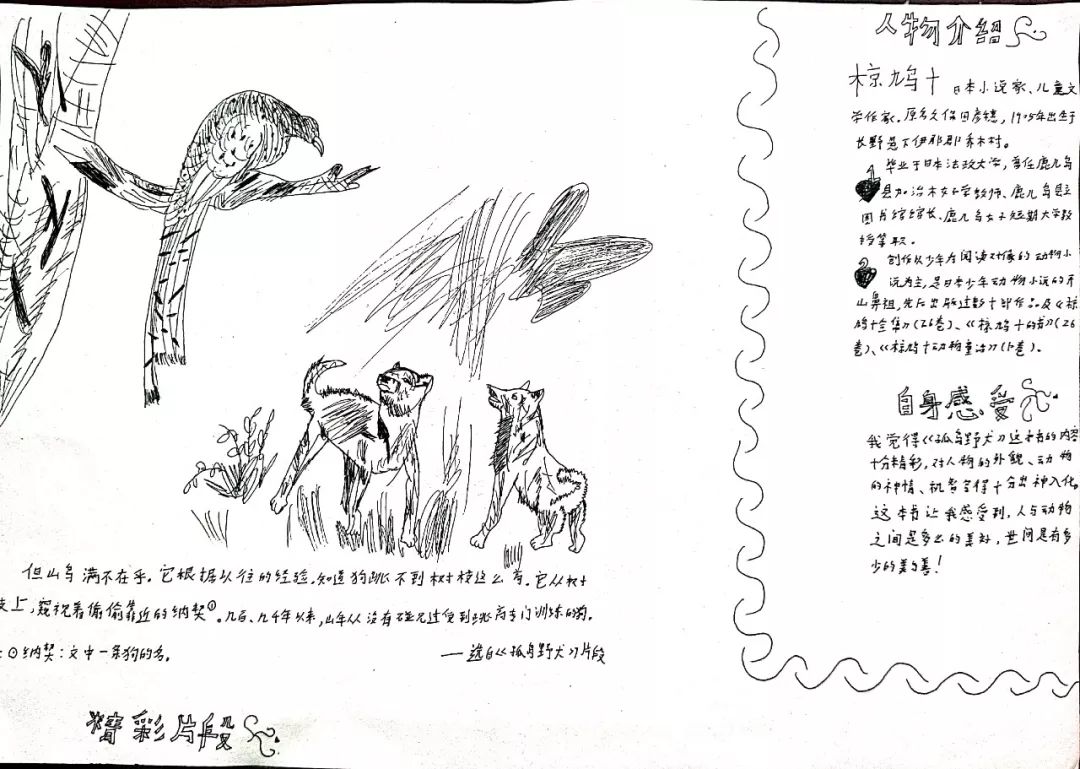 人物介绍
椋鸠十 日本小说家、儿童文
学作家。原名久保田彦穗，1905年出生于
长野县下伊那郡乔木村。
毕业于日本法政大学，曾任鹿儿岛
县加治木女子学教师、鹿儿岛县立
图书馆馆长、鹿儿岛女子短期大学教
授等职。
创作以少年为阅读对象的动物小
说为主，是日本少年动物小说的开
山鼻祖，先后出版过数十部作品及《椋
鸠十全集》(26卷)、《椋鸠十的书》(26
卷)、《椋鸠十动物童话》(15卷)。
自身感受
我觉得《孤岛野犬》这本书的内容
十分精彩，对人物的外貌、动物
的神情、机智写得十分出神入化。
这本书让我感受到，人与动物
之间是多么的美好，世间是有多
少的美与善！
但山鸟满不在乎。它根据以往的经验，知道狗跳不到树枝这么高。它从树
枝上，窥视着偷偷靠近的纳契①。几百、几千年以来，山从没有碰见过受到跳高专门训练的狗。
①纳契：文中一条狗的名。
——选自《孤岛野犬》片段
精彩片段